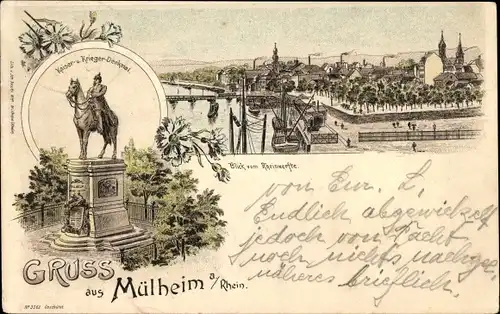 Kaiser- u. Krieger-Denkmal.
Blick vom Rheinwerfte.
von Eur. L.
Endlich abgewickelt
jedoch von Pacht
noch nichts
näheres brieflich.
GRUSS
aus Mülheim a/Rhein.
No 3762